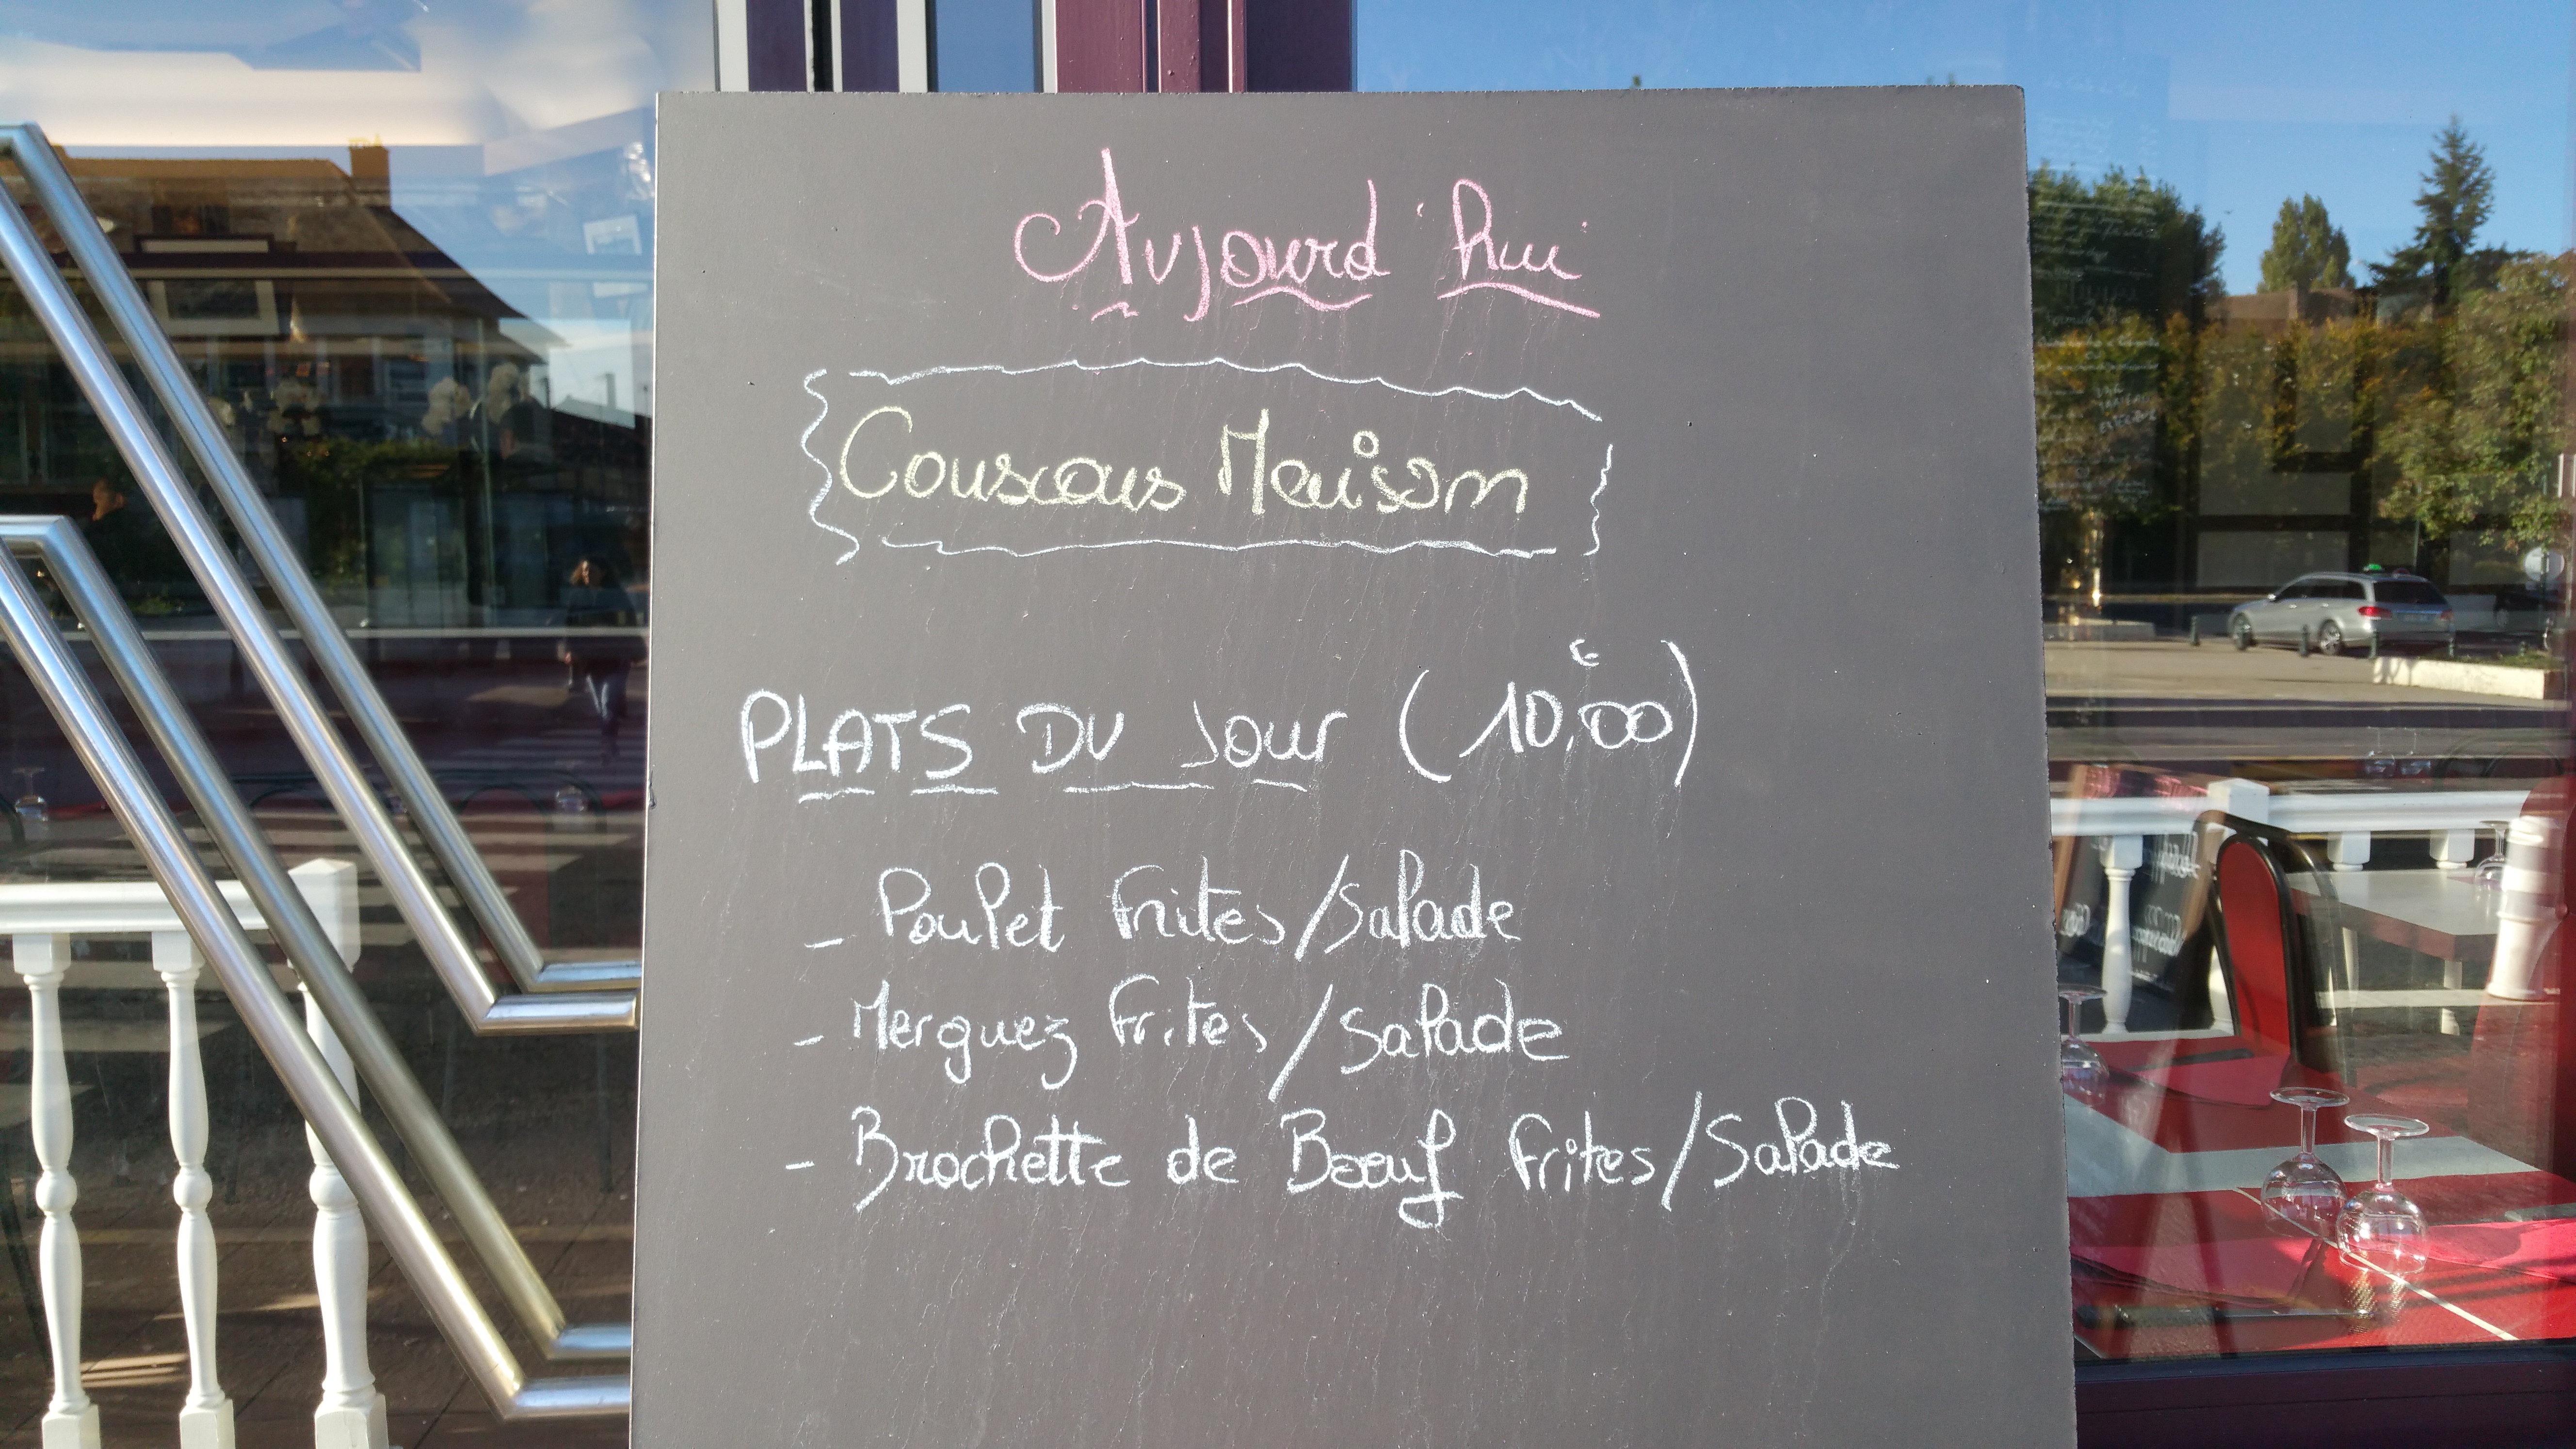 Aujourd'hui
Couscous Maison
PLATS DU JOUR (10,00€)
- Poulet frites/Salade
- Merguez frites/Salade
- Brochette de Boeuf frites/Salade